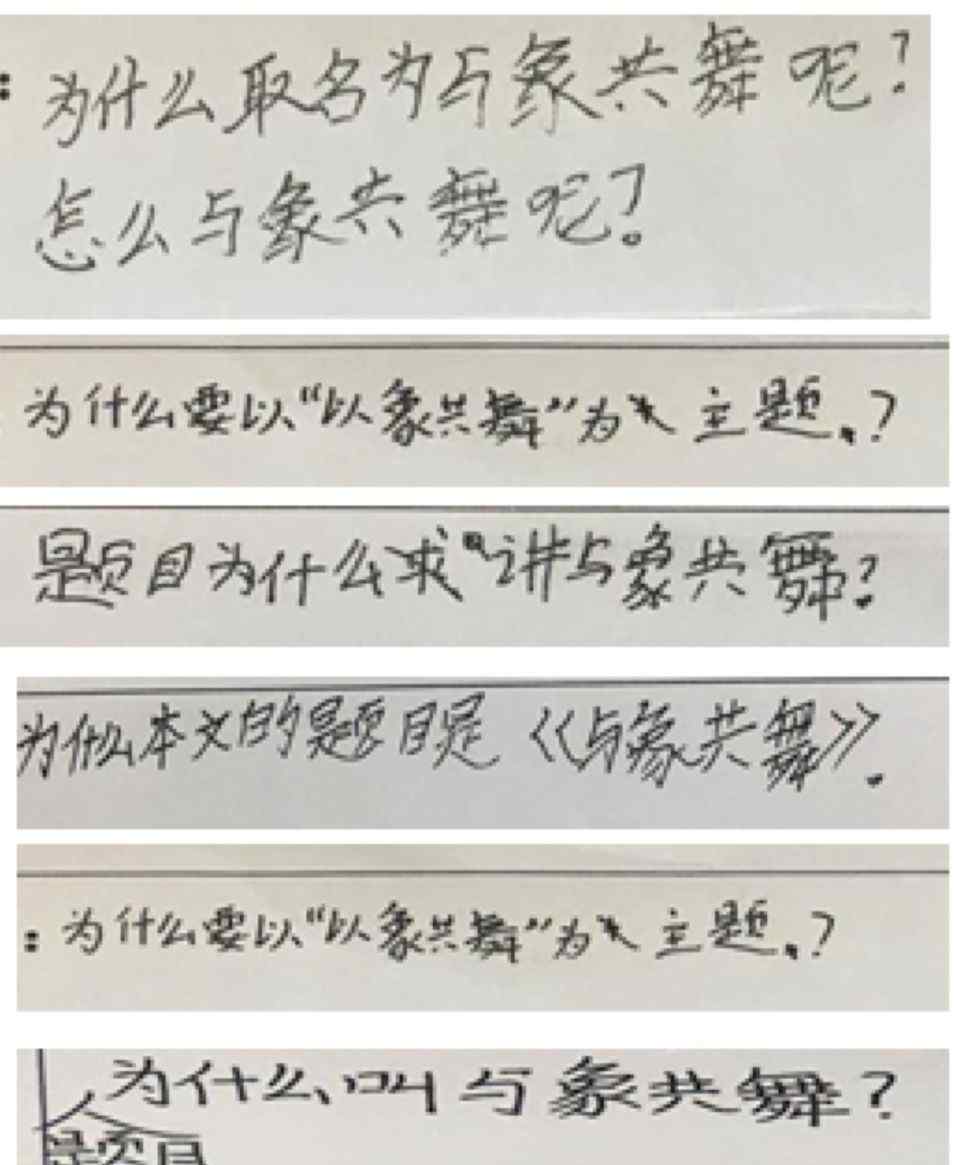 : 为什么取名为与象共舞呢?
怎么与象共舞呢?
为什么要以“以象共舞”为主题.?
题目为什么求讲与象共舞?
为什么本文的题目是《与象共舞》.
: 为什么要以“以象共舞”为主题.?
为什么叫与象共舞?
题目